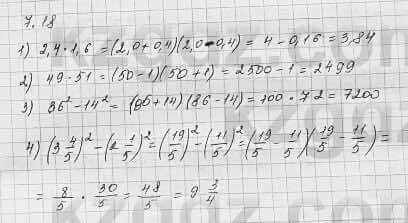 7.18
1) 2,4 · 1,6 = (2,0+0,4)(2,0-0,4) = 4 - 0,16 = 3,84
2) 49 · 51 = (50-1)(50+1) = 2500 - 1 = 2499
3) 86² - 14² = (86+14)(86-14) = 100 · 72 = 7200
4) (3 4/5)² - (2 1/5)² = (19/5)² - (11/5)² = (19/5 - 11/5)(19/5 - 11/5) =
= 8/5 · 30/5 = 48/5 = 9 3/4